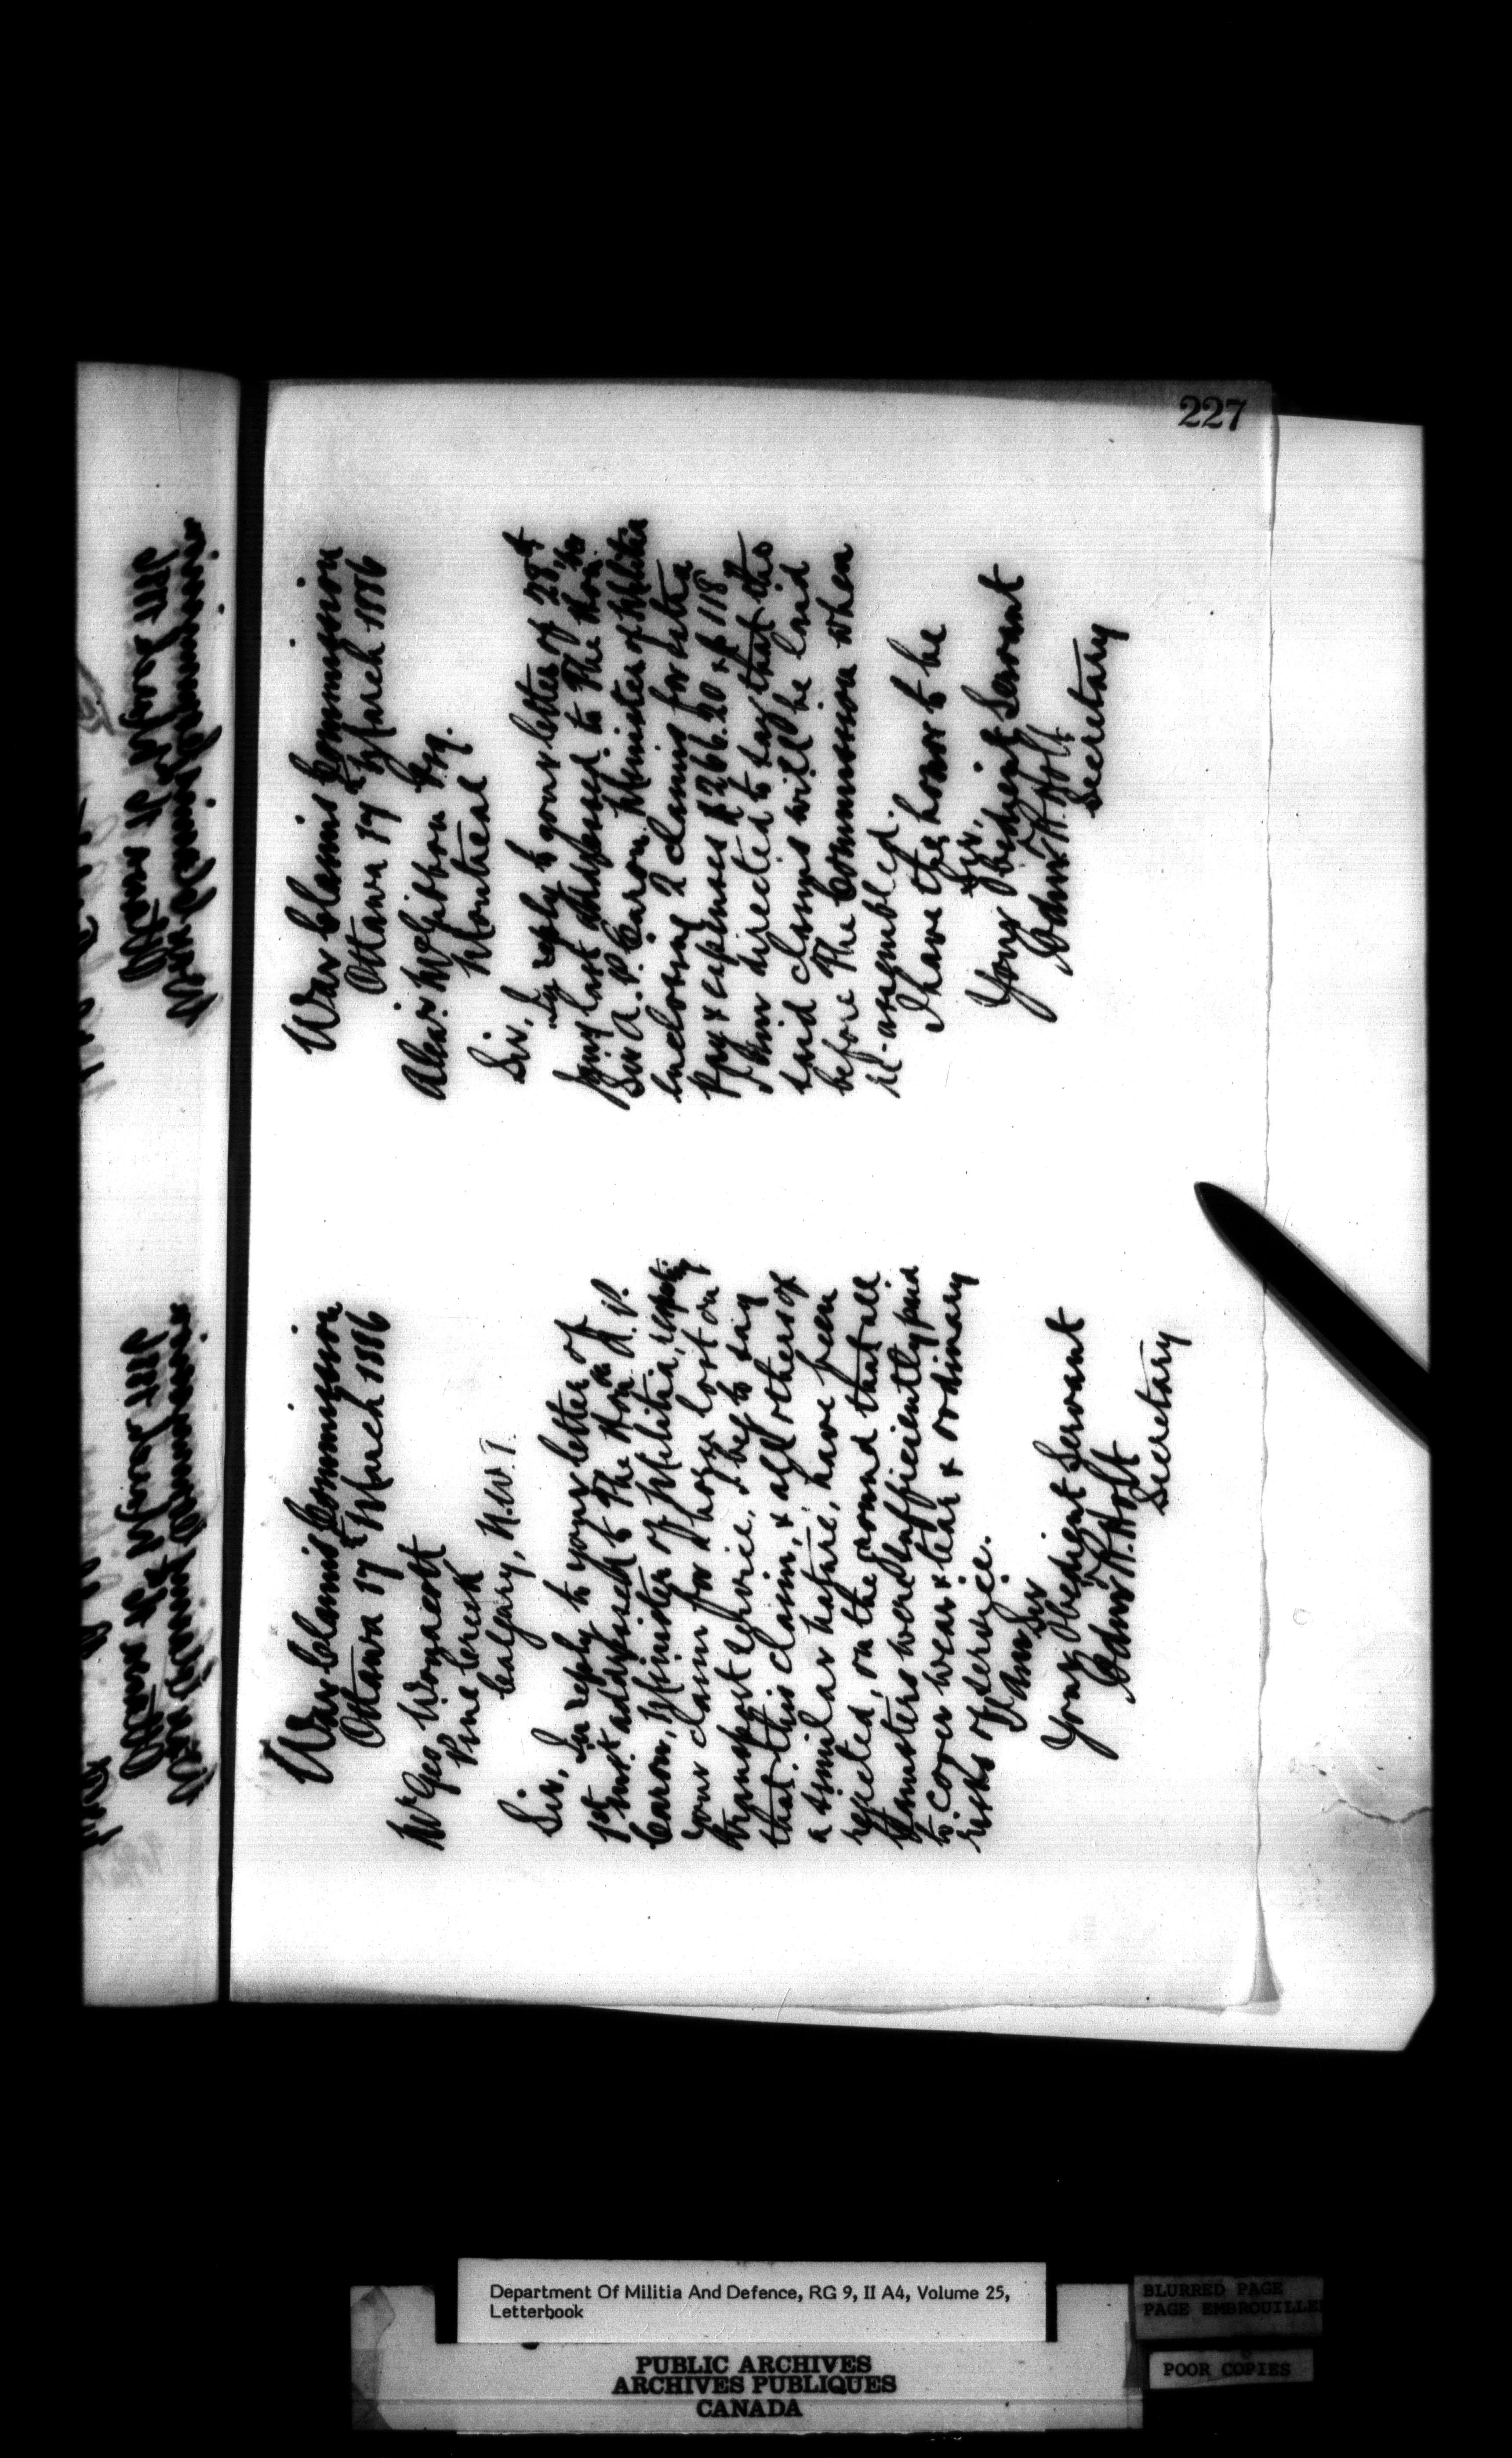 227
War Claims Commission
Ottawa 17th March 1886
Mr Geo
Pine Creek
Calgary, N.W.T.
Sir, In reply to your letter of
1st inst addressed to The Hon A. P.
Caron, Minister of Militia, respectg
your claim for a horse lost on
transport service, I beg to say
that this claim, & all others of
a similar nature, have been
rejected, on the ground that all
teamsters were sufficiently paid
to cover wear & tear & ordinary
risks of service.
I am Sir
Your Obedient Servant
John H. Holt
Secretary
War Claims Commission
Ottawa 17th March 1886
Alexr McGibbon Esq.
Montreal
Sir,
In reply to your letter of 28th
last addressed to The Hon.
Sir A. P. Caron Minister of Militia
enclosing 2 claims for extra
Pay & expenses $266.20 & $118
I am directed to say that the
said claims will be laid
before The Commission when
re-assembled.
I have the honor to be
Sir,
Your Obedient Servant
John H. Holt
Secretary
Department Of Militia And Defence, RG 9, II A4, Volume 25,
Letterbook
PUBLIC ARCHIVES
ARCHIVES PUBLIQUES
CANADA
BLURRED PAGE
PAGE EMBROUILLE
POOR COPIES